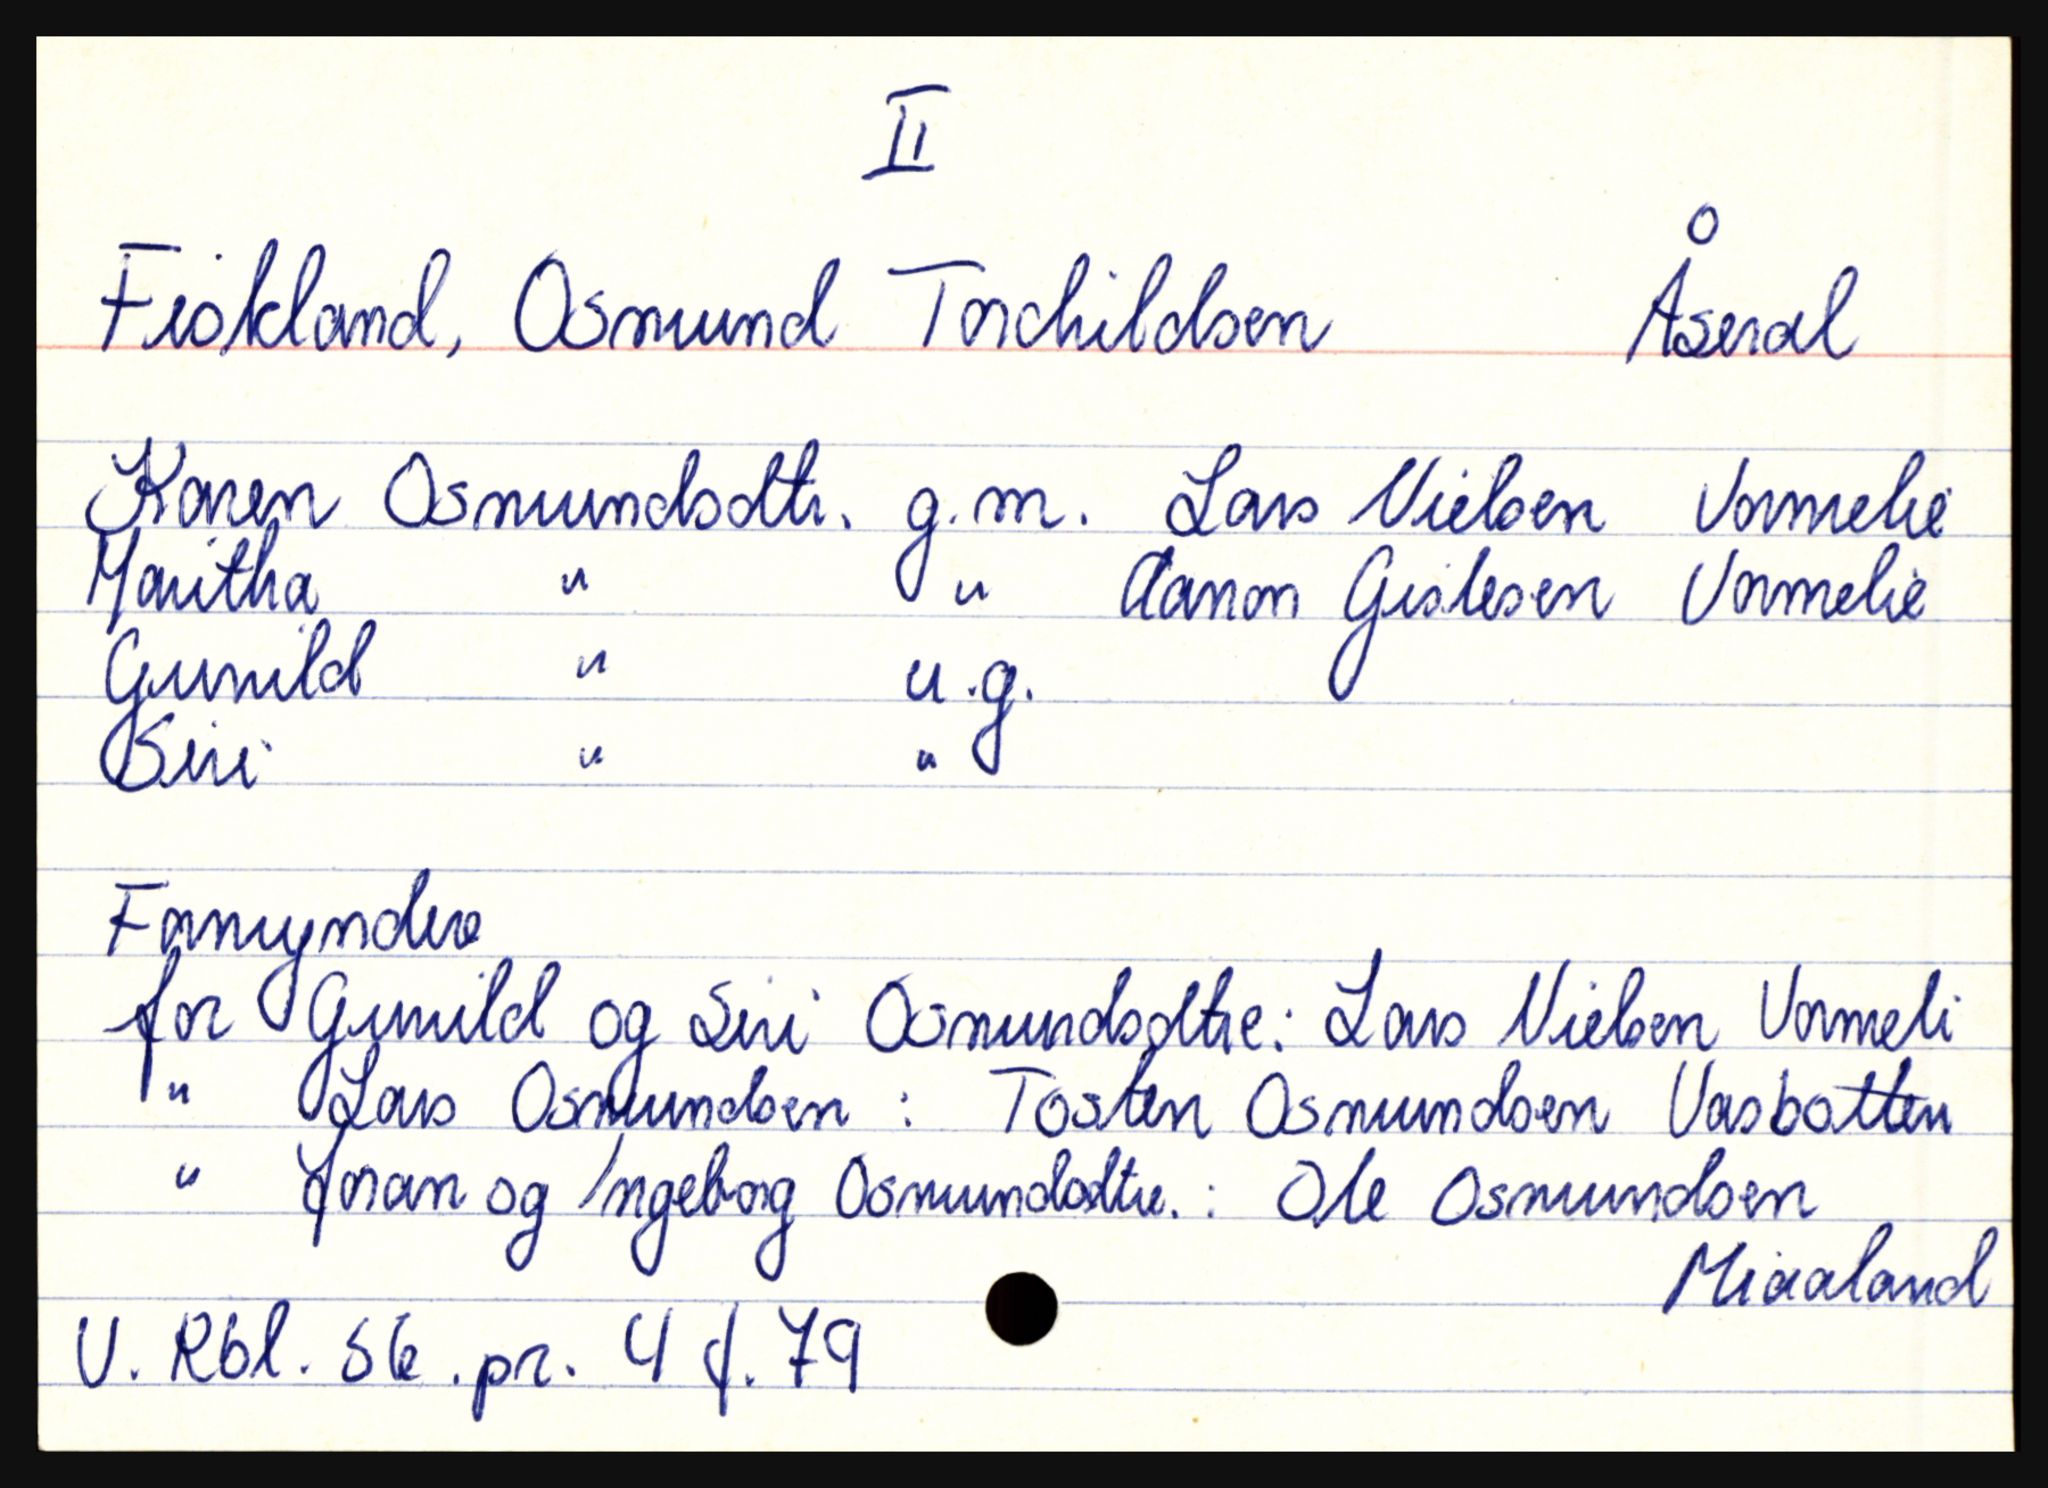 II
Fiskland, Osmund Torchildsen Åseral
Karen Osmundsdtr. g.m. Lars Nielsen Vormelie
Maritha " " Aanon Gislesen Vormelie
Gunild " u.g.
Siri " "
Formyndere
for Gunild og Siri Osmundsdtre: Lars Nielsen Vormeli
" Lars Osmundsen : Tosten Osmundsen Vasbotten
" Joran og Ingeborg Osmundsdtre. : Ole Osmundsen
Miaaland
V. Rbl. Sk. pr. 4 f. 79